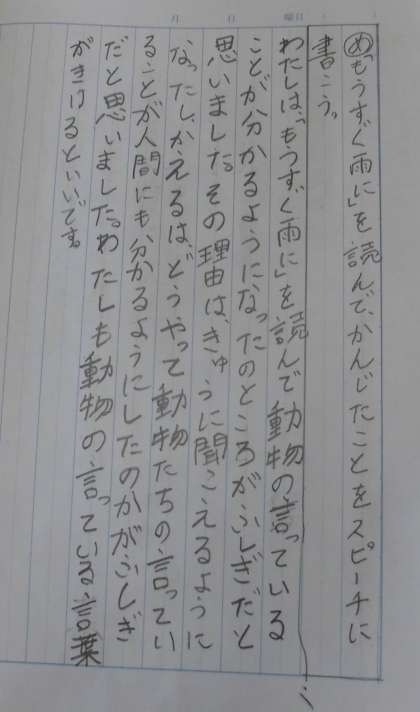 月 日 曜日
め「もうすぐ雨に」を読んで、かんじたことをスピーチに
書こう。
わたしは、「もうすぐ雨に」を読んで動物の言っている
ことが分かるようになったのところがふしぎだと
思いました。その理由は、きゅうに聞こえるように
なったし、かえるは、どうやって動物たちの言ってい
ることが人間にも分かるようにしたのかがふしぎ
だと思いました。わたしも動物の言っている言葉
がきけるといいです。